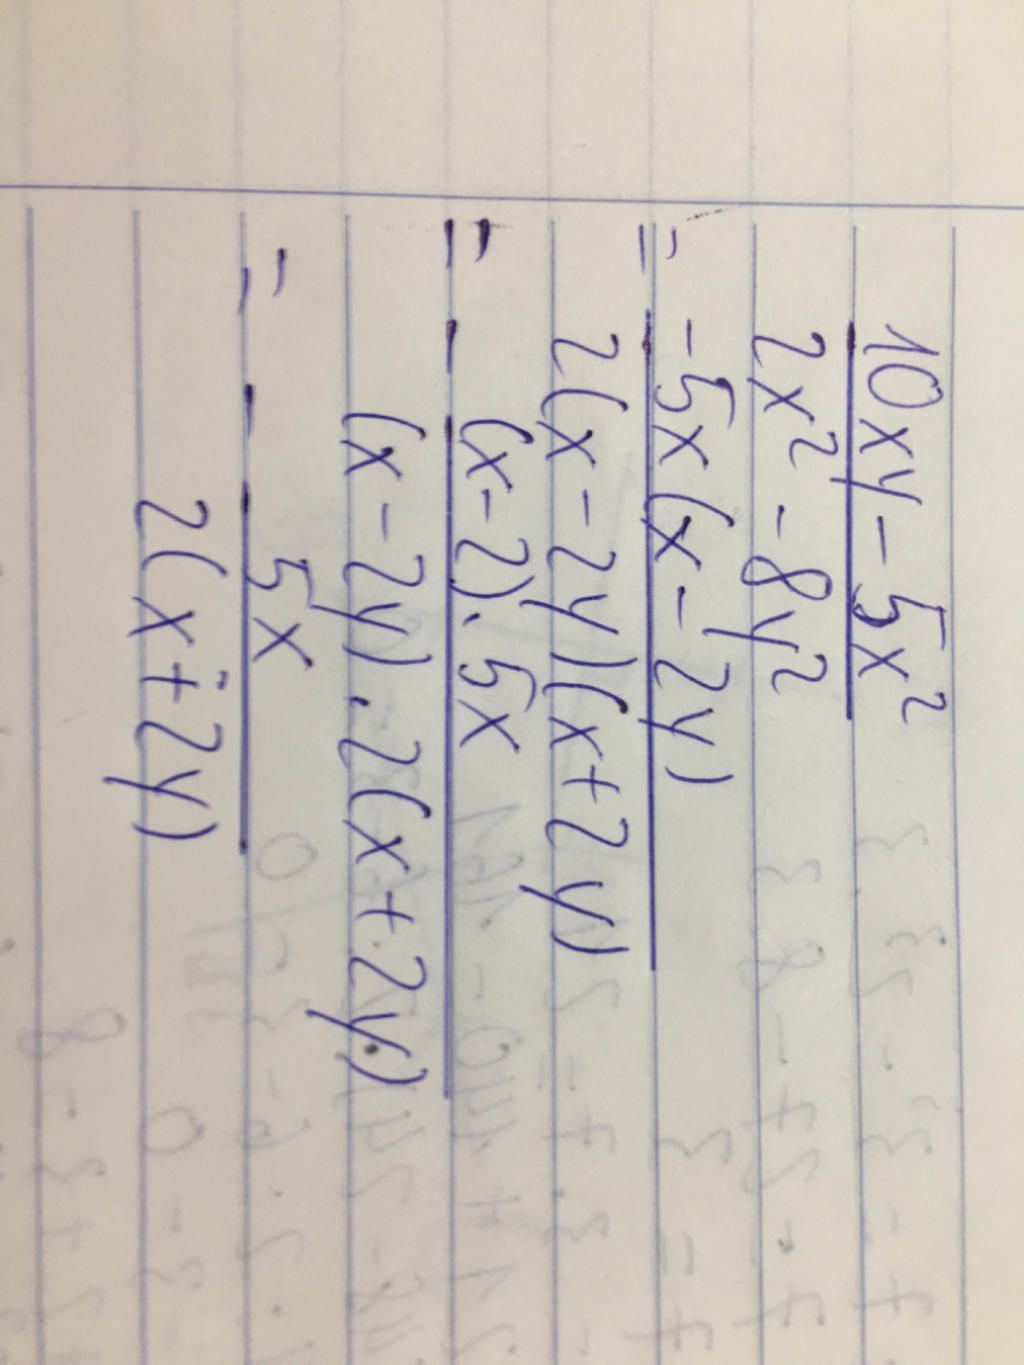 10xy - 5x²
2x² - 8y²
= -5x(x - 2y)
2(x - 2y)(x + 2y)
= - (x - 2). 5x
(x - 2y). 2(x + 2y)
= - 5x
2(x + 2y)